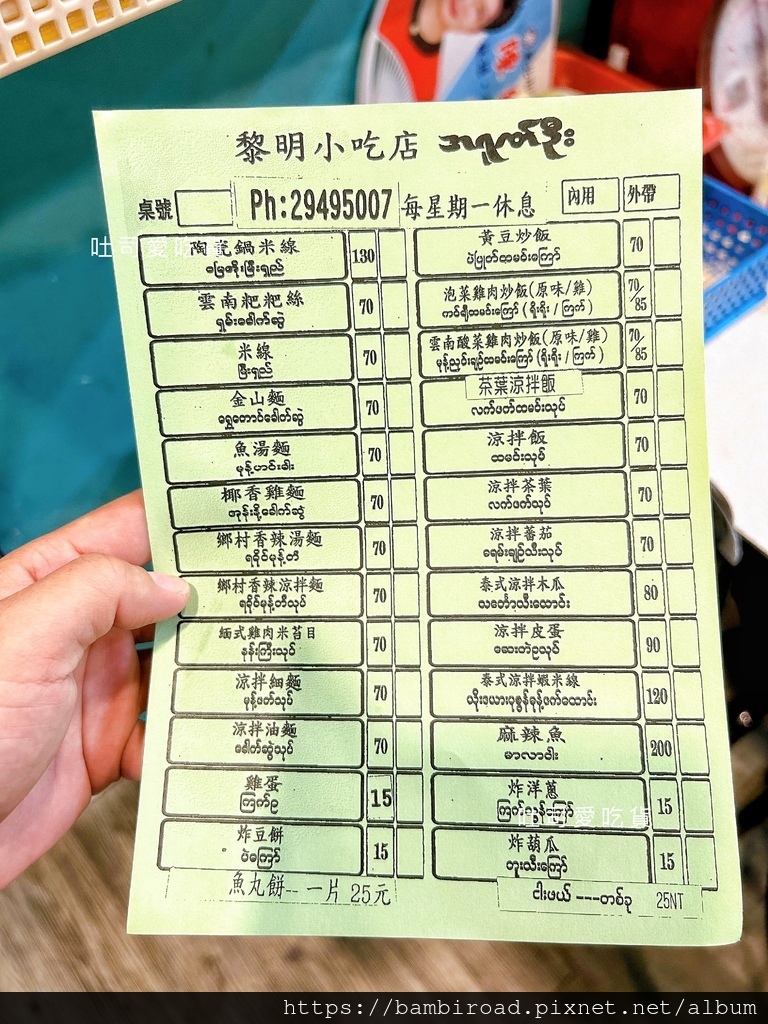 黎明小吃店 အရုဏ်ဦး
桌號 Ph:29495007 每星期一休息 內用 外帶
陶瓷鍋米線 130
မြေအိုးမြီးရှည်
雲南粑粑絲 70
ရှမ်းခေါက်ဆွဲ
米線 70
မြီးရှည်
金山麵 70
ရွှေတောင်ခေါက်ဆွဲ
魚湯麵 70
မုန့်ဟင်းခါး
椰香雞麵 70
အုန်းနို့ခေါက်ဆွဲ
鄉村香辣湯麵 70
ရခိုင်မုန့်တီ
鄉村香辣涼拌麵 70
ရခိုင်မုန့်တီသုပ်
緬式雞肉米苔目 70
နန်းကြီးသုပ်
涼拌細麵 70
မုန့်ဖတ်သုပ်
涼拌油麵 70
ခေါက်ဆွဲသုပ်
雞蛋 15
ကြက်ဥ
炸豆餅 15
ပဲကြော်
魚丸餅-- 一片 25元
黃豆炒飯 70
ပဲပြုတ်ထမင်းကြော်
泡菜雞肉炒飯(原味/雞) 70/85
ကင်ချီထမင်းကြော် (ရိုးရိုး / ကြက်)
雲南酸菜雞肉炒飯(原味/雞) 70/85
မုန့်ညှင်းချဉ်ထမင်းကြော် (ရိုးရိုး / ကြက်)
茶葉涼拌飯 70
လက်ဖက်ထမင်းသုပ်
涼拌飯 70
ထမင်းသုပ်
涼拌茶葉 70
လက်ဖက်သုပ်
涼拌蕃茄 70
ခရမ်းချဉ်သီးသုပ်
泰式涼拌木瓜 80
သင်္ဘောသီးထောင်း
涼拌皮蛋 90
ဆေးဘဲဥသုပ်
泰式涼拌蝦米線 120
ယိုးဒယားပုစွန်မုန့်ဖက်ထောင်း
麻辣魚 200
မာလာငါး
炸洋蔥 15
ကြက်သွန်ကြော်
炸葫瓜 15
ဘူးသီးကြော်
ငါးဖယ် ---တစ်ခု 25NT
吐司愛吃貨
吐司愛吃貨
https://bambiroad.pixnet.net/album